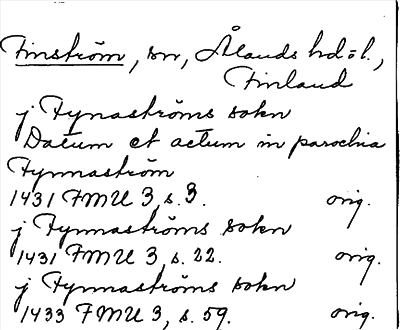 Finström, sn, Ålands hd o l.,
Finland
j Fynaströms sokn
Datum et actum in parochia
Fynnaström
1431 FMU 3, s. 3. orig.
j Fynnaströms sokn
1431 FMU 3, s. 22. orig.
j Fynnaströms sokn
1433 FMU 3, s. 59. orig.